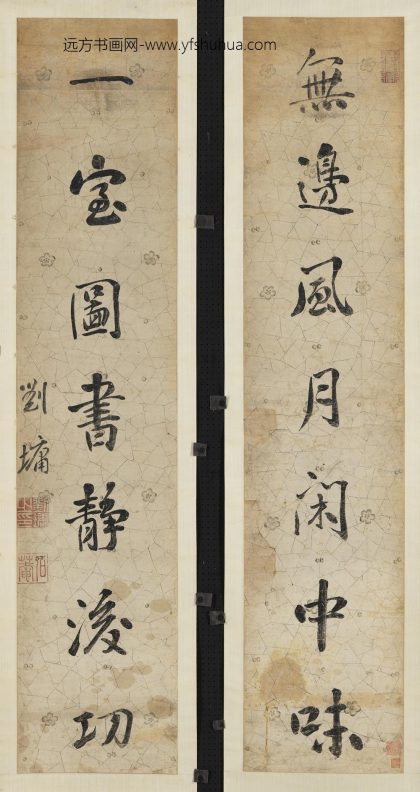 远方书画网-www.yfshuhua.com
無邊風月閑中味
一室圖書靜後功
劉墉
劉墉之印
石菴